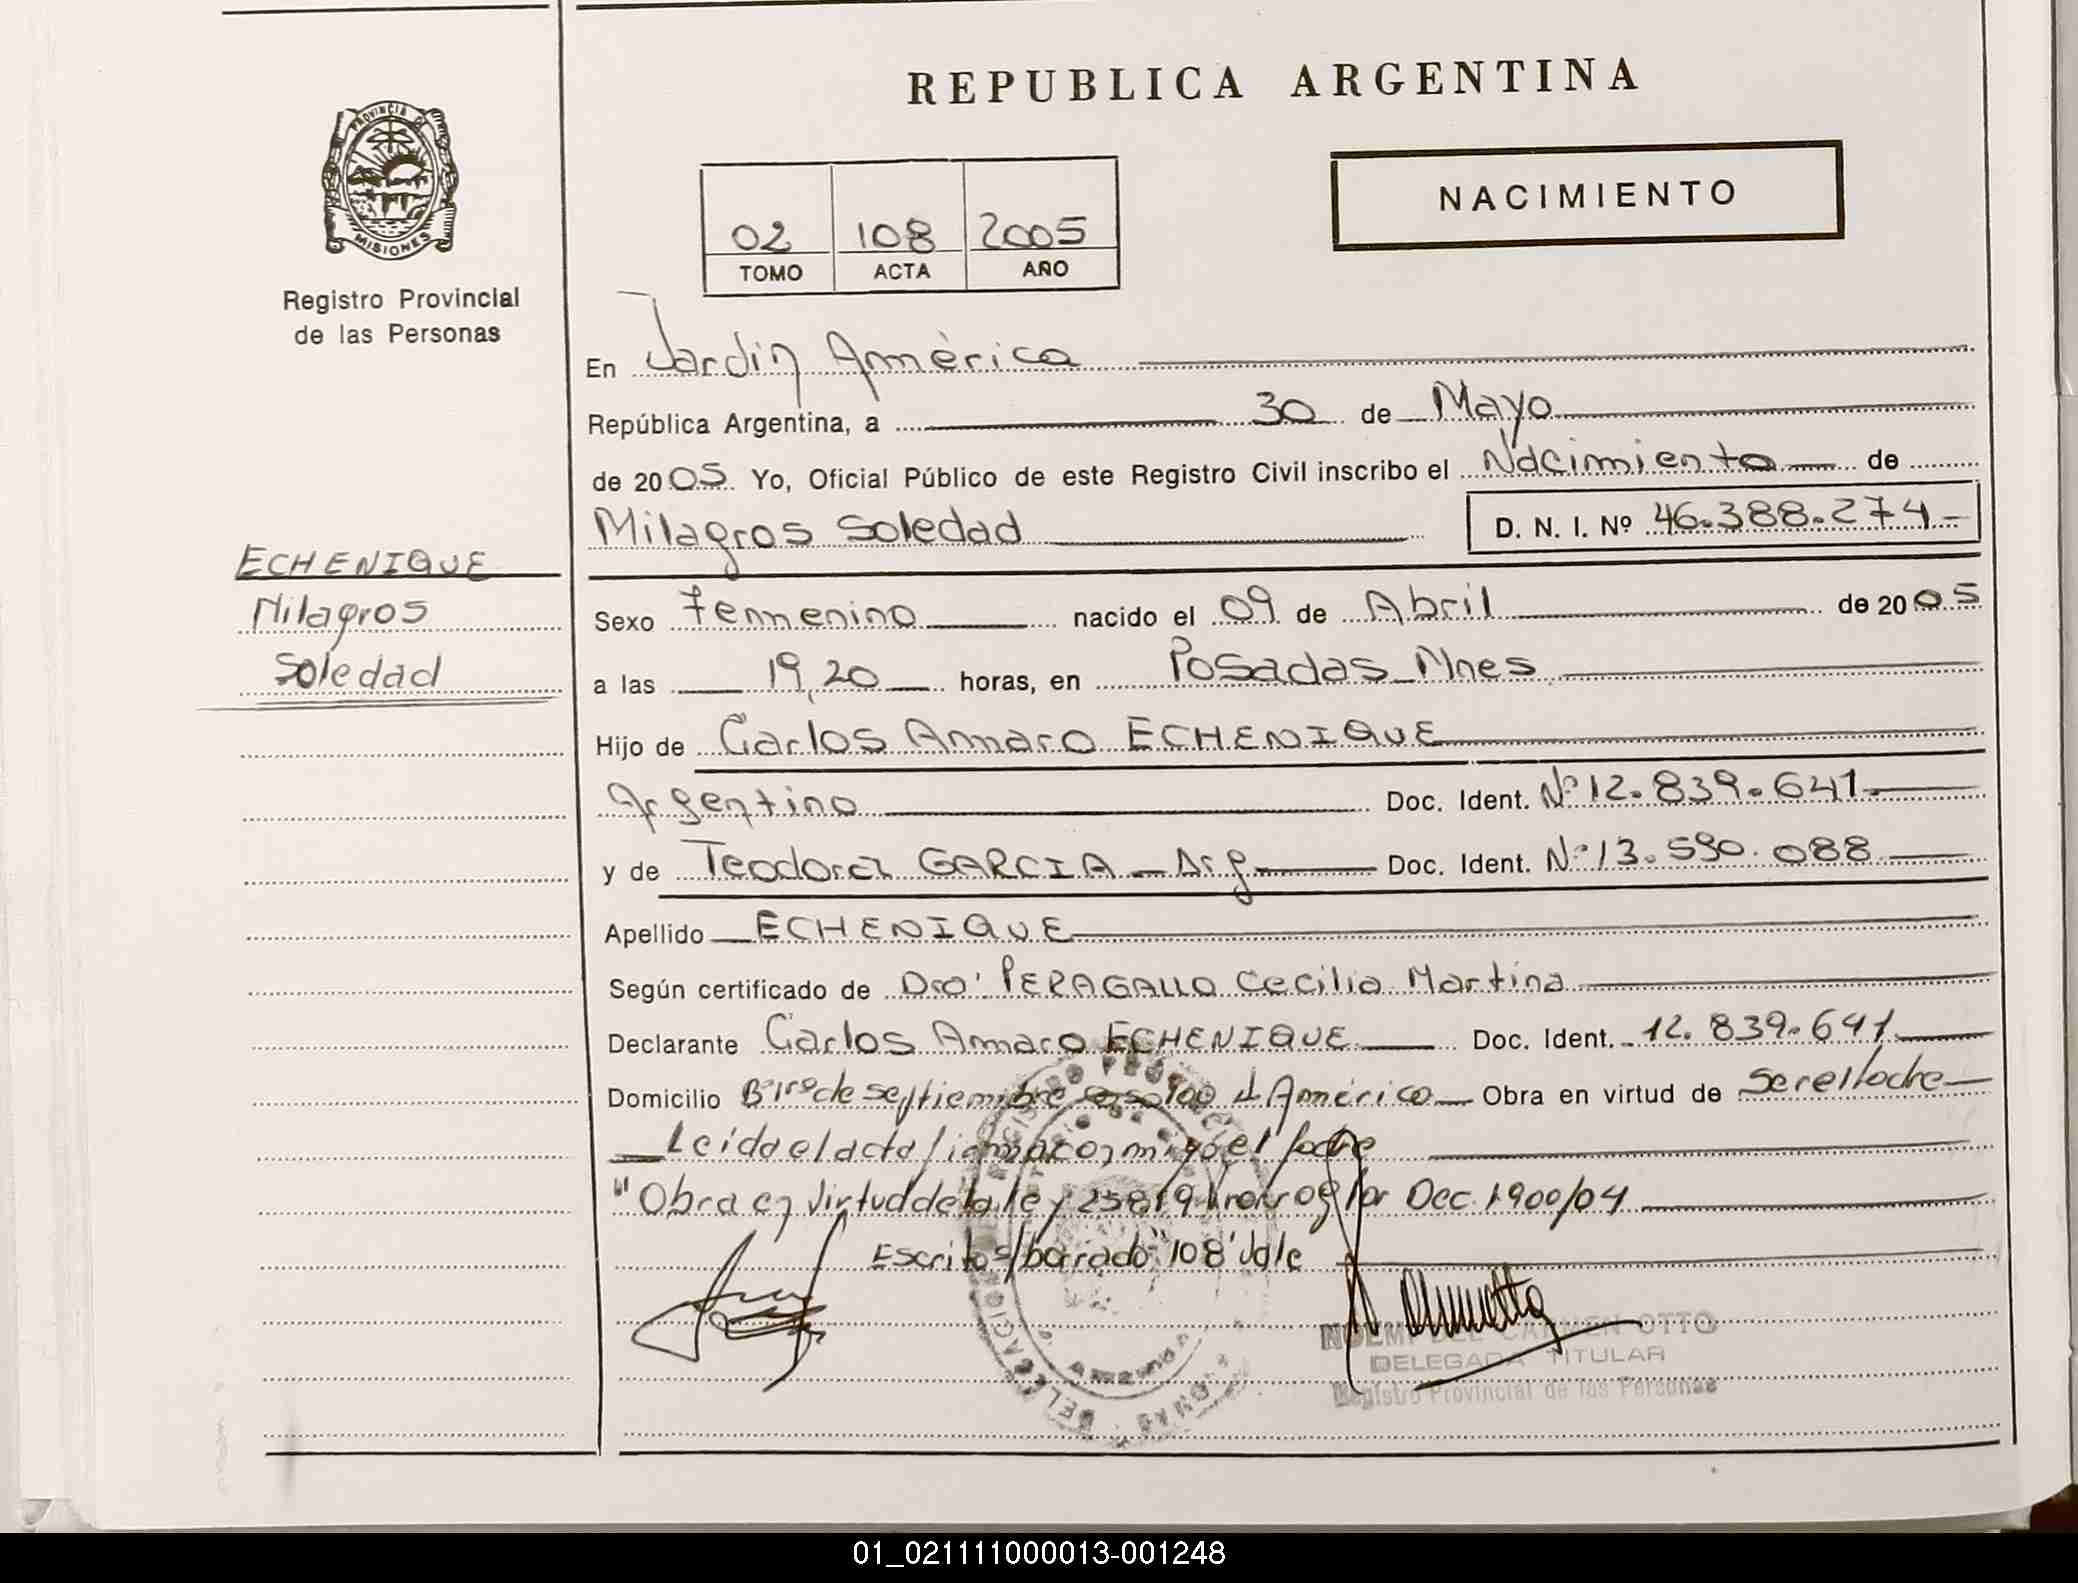 REPUBLICA ARGENTINA
PROVINCIA DE
MISIONES
Registro Provincial
de las Personas
02 108 2005
TOMO ACTA AÑO
NACIMIENTO
En Jardin América
República Argentina, a 30 de Mayo
de 2005 Yo, Oficial Público de este Registro Civil inscribo el Nacimiento de
Milagros Soledad D. N. I. Nº 46.388.274
ECHENIQUE
Milagros
Soledad
Sexo Femenino nacido el 09 de Abril de 2005
a las 19,20 horas, en Posadas Mnes
Hijo de Carlos Amaro ECHENIQUE
Argentino Doc. Ident. Nº 12.839.641
y de Teodora GARCIA - Arg Doc. Ident. Nº 13.590.088
Apellido ECHENIQUE
Según certificado de Dra PERAGALLO Cecilia Martina
Declarante Carlos Amaro ECHENIQUE Doc. Ident. 12.839.641
Domicilio Bº 1ro de Septiembre J América Obra en virtud de ser el padre
Leida el acta firman conmigo el padre
"Obra en virtud de la ley 25819 por Dec 1900/04
Escrito s/ borrado "108" Vale
NOEMI DEL CARMEN OTTO
DELEGADA TITULAR
Registro Provincial de las Personas
01_021111000013-001248